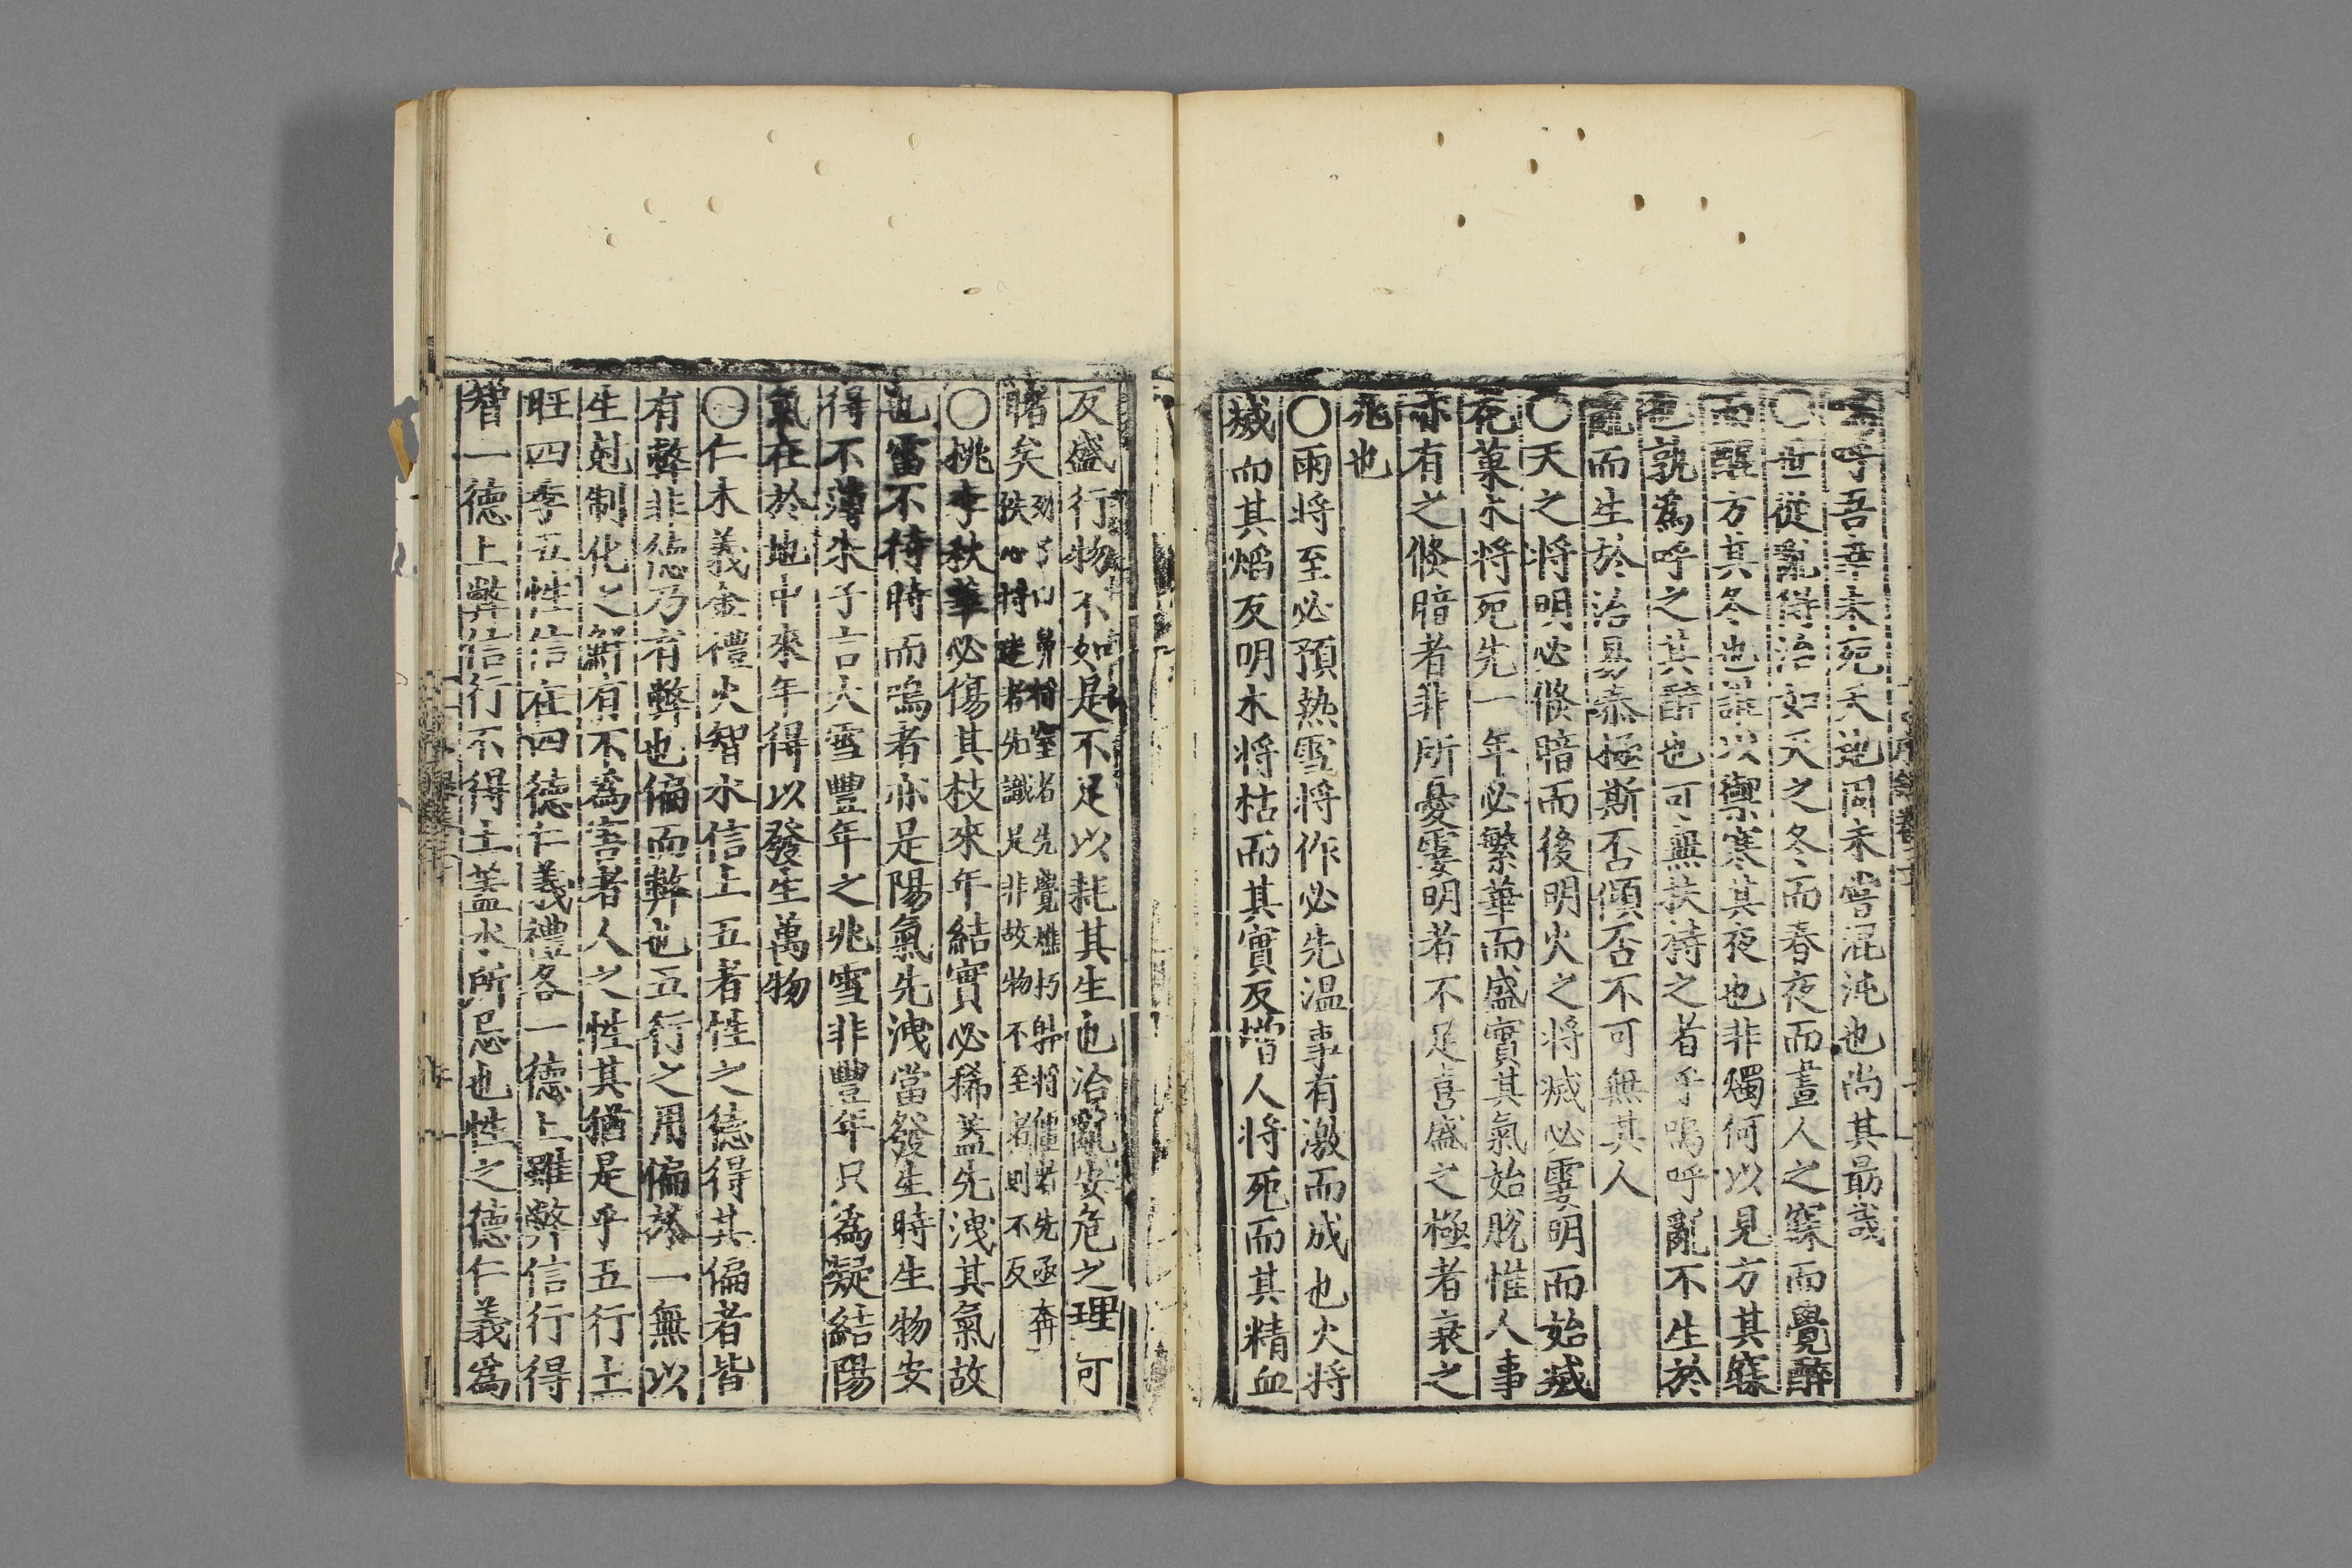 嗚呼吾幸未死天地固未嘗混沌也尚其勗哉
○世從亂得治如天之冬而春夜而晝人之寐而覺醉
而醒方其冬也誰以禦寒其夜也非燭何以見方其寐
也孰為呼之其醉也可無扶持之者乎嗚呼亂不生於
亂而生於治易泰極斯否傾否不可無其人
○天之將明必倐暗而後明火之將㓕必霎明而始㓕
花菓木將死先一年必繁華而盛實其氣始脫惟人事
亦有之倐暗者非所憂霎明者不足喜盛之極者衰之
兆也
○雨將至必預熱雪將作必先温事有激而成也火將
㓕而其熖反明水將枯而其實反增人將死而其精血
反盛行物不如是不足以耗其生也治亂安危之理可
睹矣
列子曰鼻將窒者先覺焦朽體將僵者先亟奔
佚心將迷者先識是非故物不至者則不反
○桃李秋華必傷其枝來年結實必稀盖先洩其氣故
也雷不待時而鳴者亦是陽氣先洩當發生時生物安
得不薄朱子言大雪豐年之兆雪非豐年只為凝結陽
氣在於地中來年得以發生萬物
○仁木義金禮火智水信土五者性之德得其偏者皆
有弊非德乃有弊也偏而弊也五行之用偏於一無以
生尅制化之斯有不為害者人之性其猶是乎五行土
旺四季五性信在四德仁義禮各一德上雖弊信行得
智一德上弊信行不得土盖水所忌也性之德仁義為